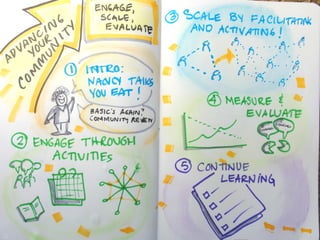 ADVANCING
YOUR
COMMUNITY
ENGAGE,
SCALE,
EVALUATE
① INTRO:
NANCY TALKS
YOU EAT!
BASIC'S AGAIN?
COMMUNITY REVIEW
② ENGAGE THROUGH
ACTIVITIES
③ SCALE BY FACILITATING
AND ACTIVATING!
④ MEASURE &
EVALUATE
⑤ CONTINUE
LEARNING